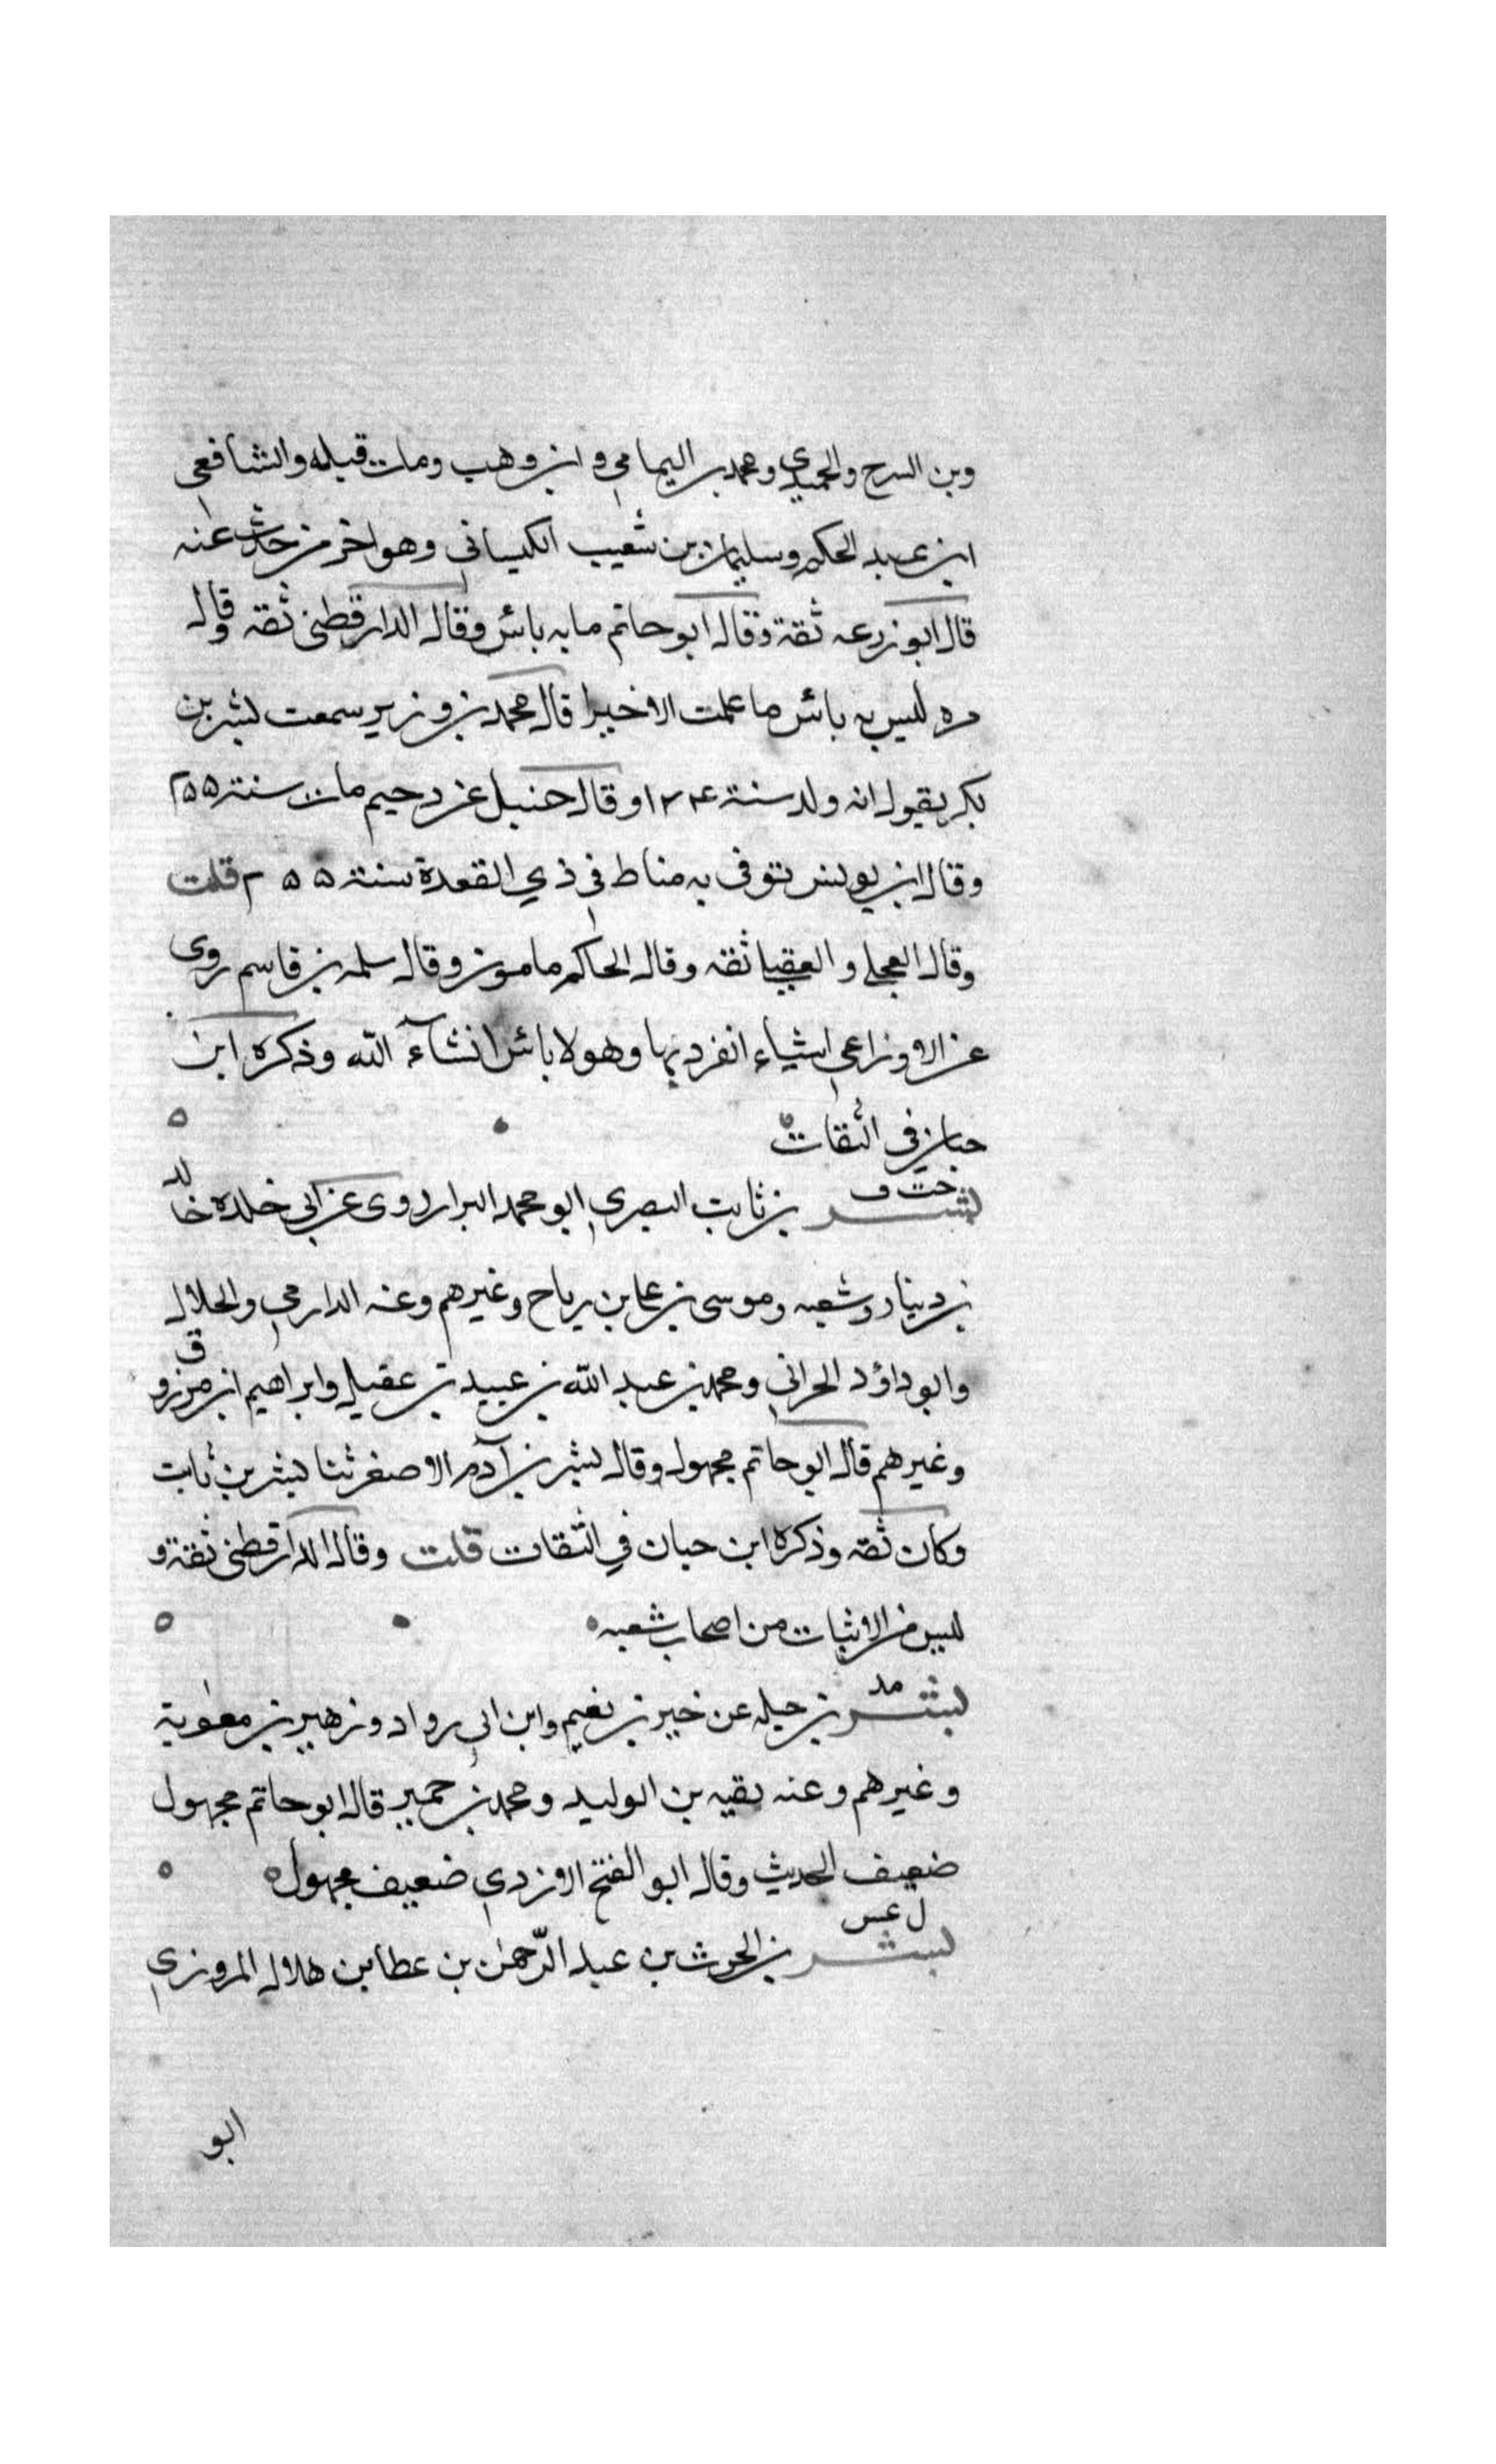 وبن السرح والحميدي ومحمد بر اليمامي و ابن وهب ومات قبله والشافعي
ابن عبد الحكم وسليمان بن شعيب الكيساني وهو اخر من حدث عنه
قال ابو زرعه ثقة وقال ابو حاتم ما به بائس وقال الدارقطني ثقه وقال
مره ليس به بائس ما علمت الا خيرا قال محمد بن وزير سمعت بشر بن
بكر يقول انه ولد سنة ١٢٤ وقال حنبل عن دحيم مات سنة ٢٥٥
وقال ابن يونس توفى به مناط في ذي القعدة سنة ٢٥٥ قلت
وقال العجلي و العقيلي ثقه وقال الحاكم مامون وقال سلمه بن قاسم روى
عن الاوزاعي اشياء انفرد بها وهو لا بائس انشآء الله وذكره ابن
حبان في الثقات ٥
خت ق
بشر بن ثابت البصري ابو محمد البزار روى عن ابي خلده خالد
بن دينار وشعبه وموسى بن علي بن رباح وغيرهم وعنه الدارمي والخلال
ق
وابو داؤد الحراني ومحمد بن عبد الله بن عبيد بن عقيل وابراهيم ابن مرزو
وغيرهم قال ابو حاتم مجهول وقال بشر بن آدم الاصغر ثنا بشر بن ثابت
وكان ثقه وذكره ابن حبان في الثقات قلت وقال الدارقطني ثقة و
ليس من الاثبات من اصحاب شعبه ٥
مد
بشر بن جبله عن خير بن نعيم وابن ابي رواد وزهير بن معوية
وغيرهم وعنه بقيه بن الوليد ومحمد بن حمير قال ابو حاتم مجهول
ضعيف الحديث وقال ابو الفتح الازدي ضعيف مجهول ٥
ل عس
بشر بن الحرث بن عبد الرحمن بن عطا بن هلال المروزي
ابو